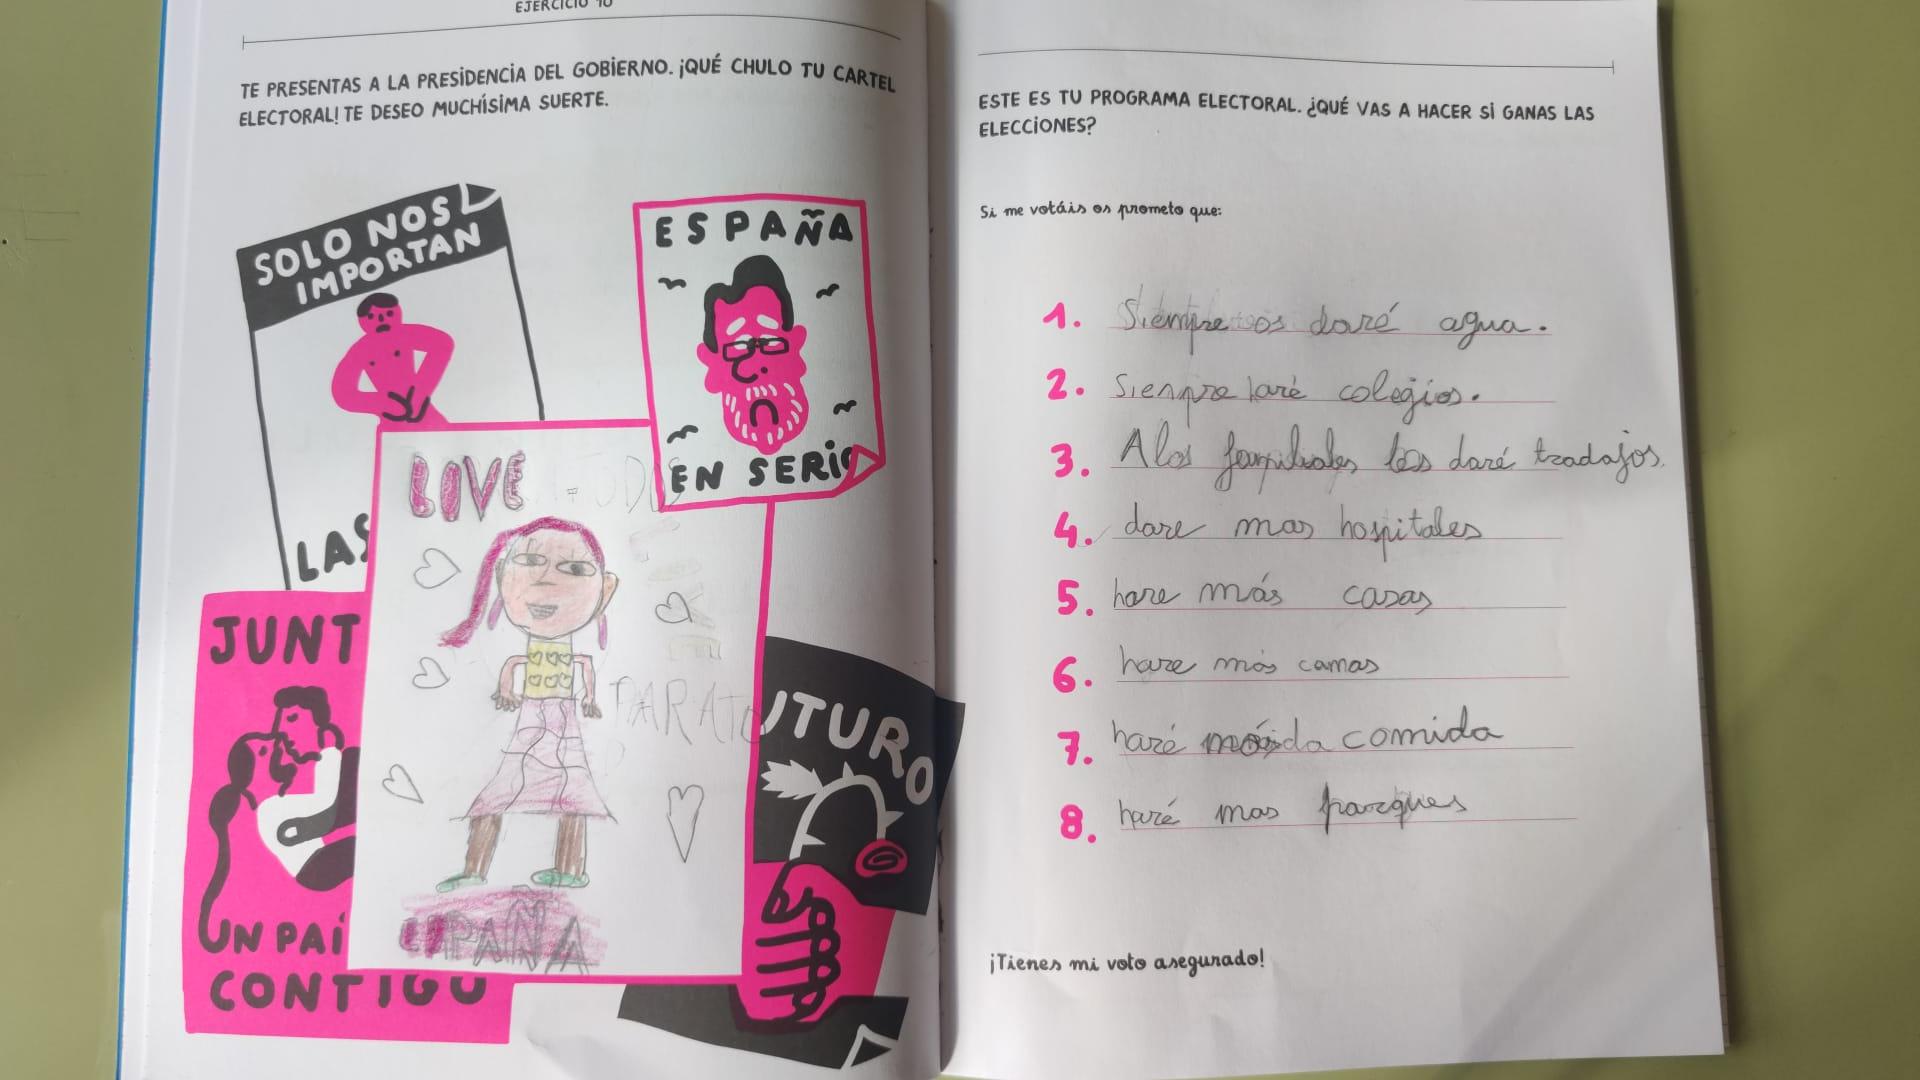 EJERCICIO 10
TE PRESENTAS A LA PRESIDENCIA DEL GOBIERNO. ¡QUÉ CHULO TU CARTEL
ELECTORAL! TE DESEO MUCHÍSIMA SUERTE.
SOLO NOS
IMPORTAN
LAS
ESPAÑA
EN SERIO
LOVE
PARA TO
JUNT
UN PAÍ
CONTIGO
UTURO
ESPAÑA
ESTE ES TU PROGRAMA ELECTORAL. ¿QUÉ VAS A HACER SI GANAS LAS
ELECCIONES?
Si me votáis os prometo que:
1. Siempre os daré agua.
2. Siempre haré colegios.
3. A los familiales les daré tradajos.
4. dare mas hospitales
5. hare más casas
6. hare más camas
7. haré comida
8. haré mas parques
¡Tienes mi voto asegurado!